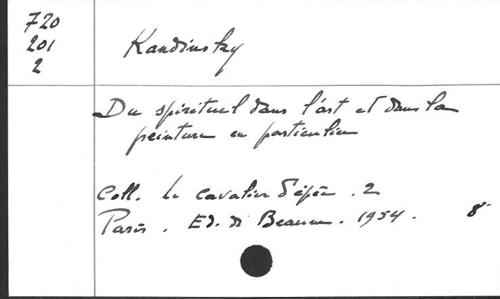 720
201
2
Kandinsky
Du spirituel dans l'art et dans la
peinture en particulier
Coll. Le cavalier d'épée . 2
Paris . Ed. de Beaune . 1954 . 8°